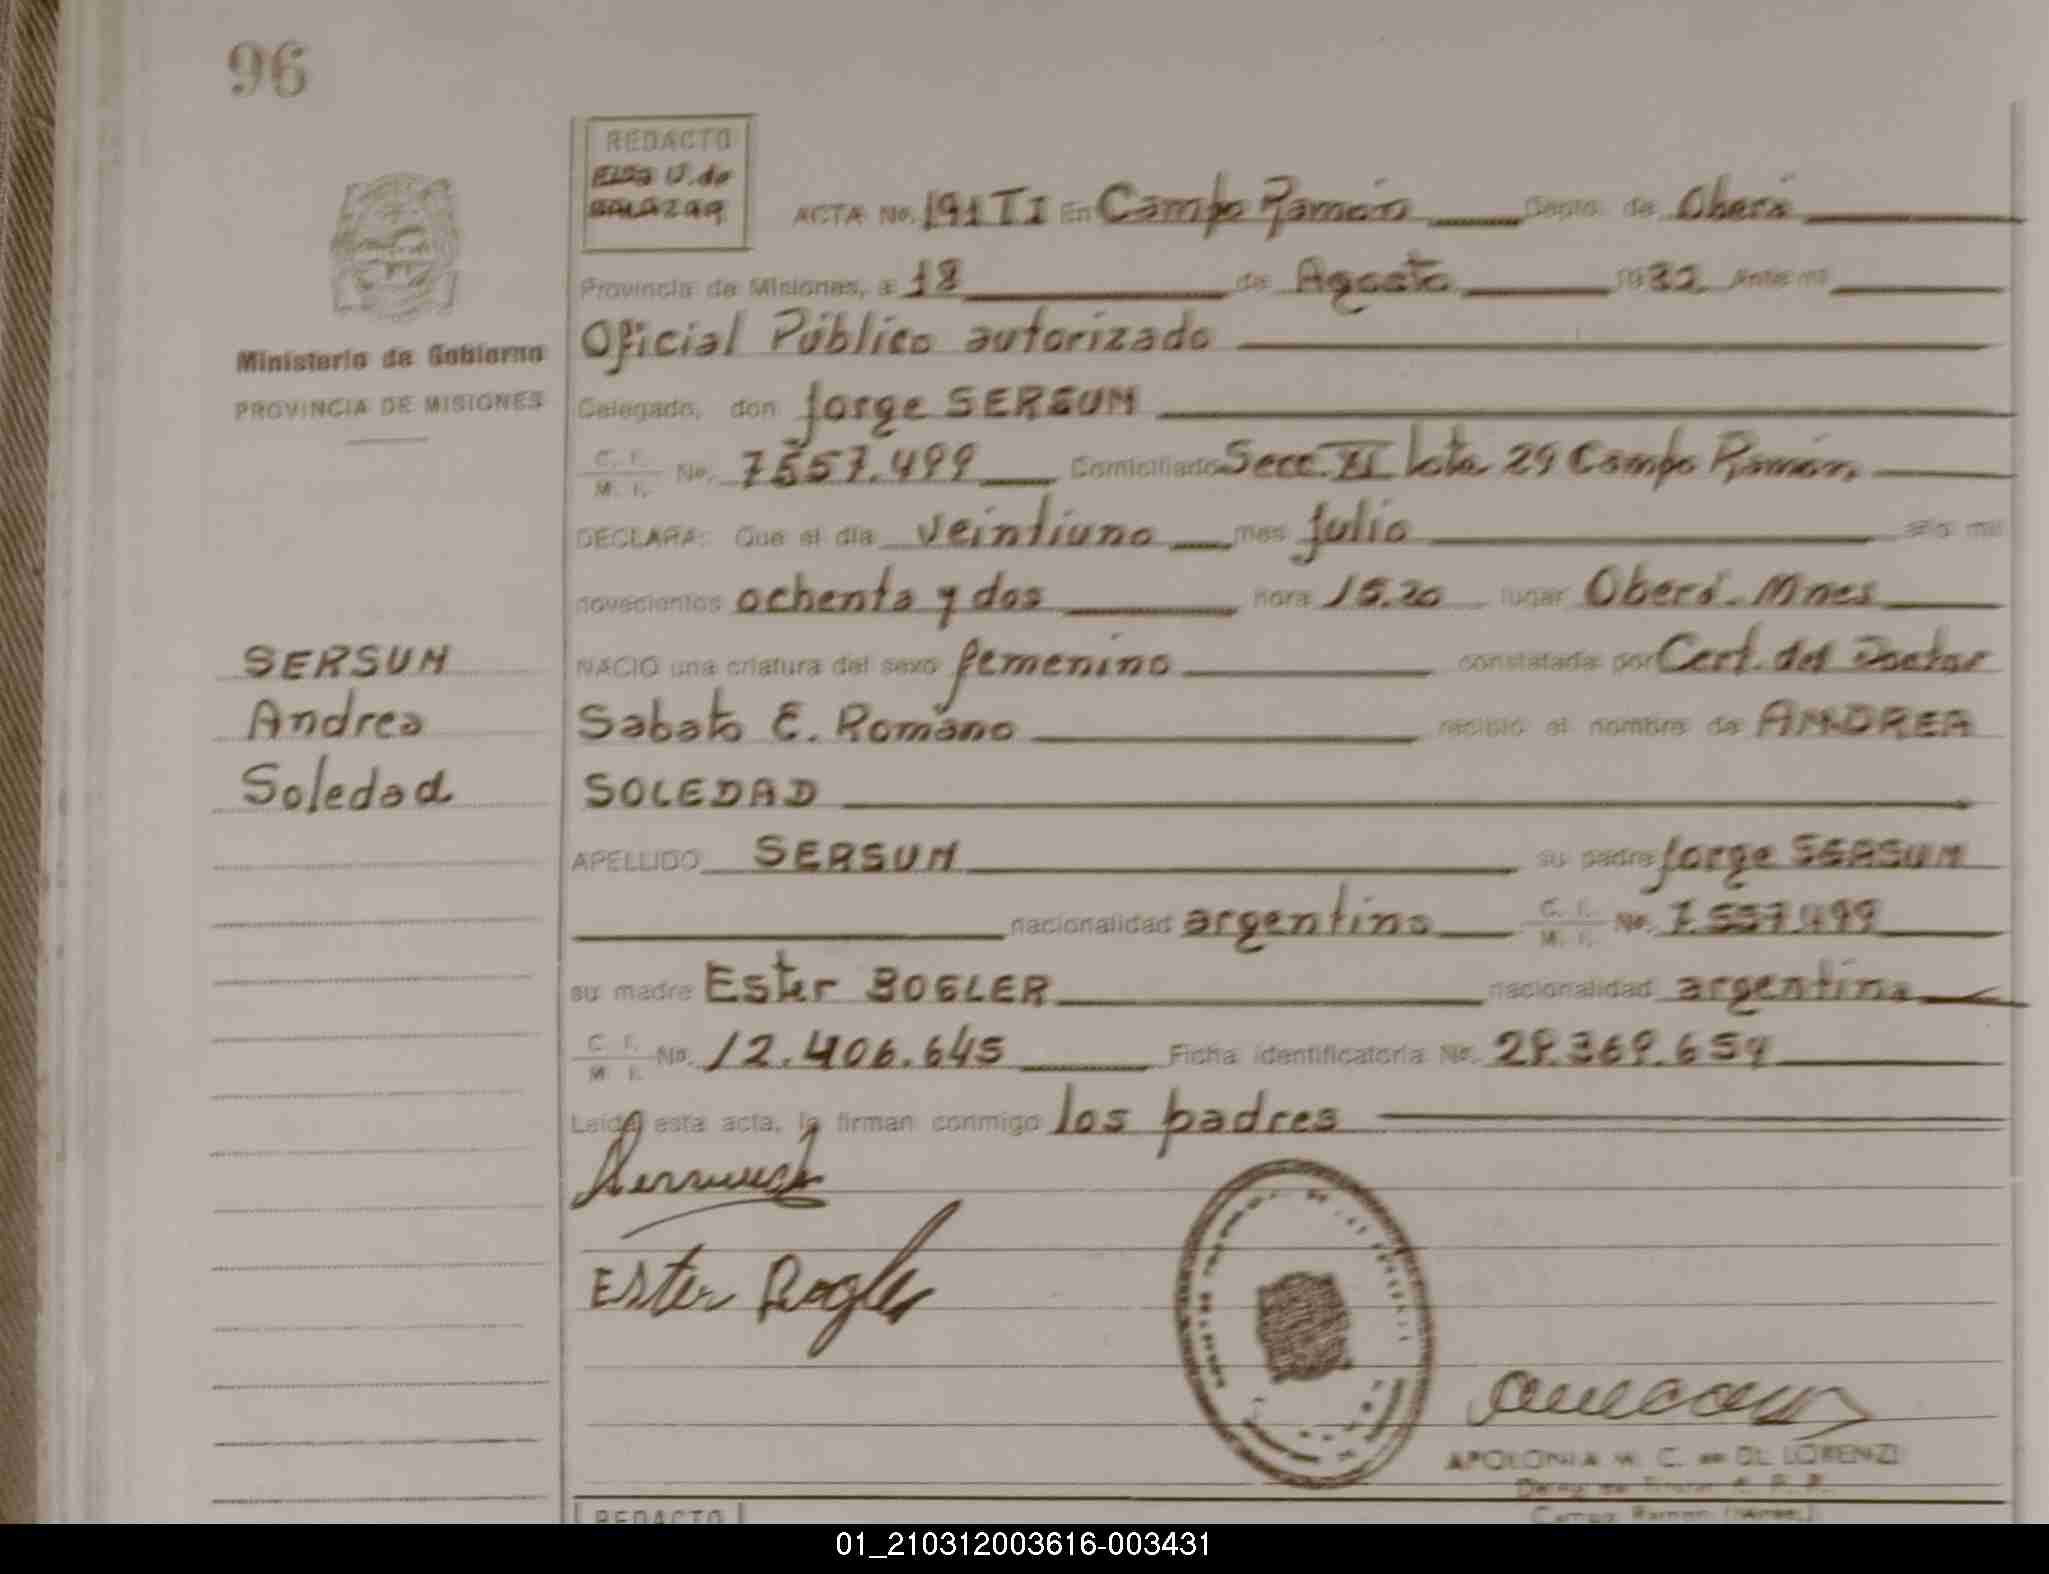 96
REDACTO
ELSA U. de
SALAZAR
ACTA No. 191 TI En Campo Ramón Depto. de Oberá
Provincia de Misiones, a 18 de Agosto 1982 Ante mi
Oficial Público autorizado
Ministerio de Gobierno
PROVINCIA DE MISIONES
Delegado, don Jorge SERSUN
C. I. M. I. No. 7557.499 Domiciliado Secc. XI lote 29 Campo Ramón
DECLARA: Que el día veintiuno mes julio año mil
novecientos ochenta y dos hora 15.20 lugar Oberá. Mnes
SERSUN
Andrea
Soledad
NACIO una criatura del sexo femenino constatada por Cert. del Doctor
Sabato E. Romano recibió el nombre de ANDREA
SOLEDAD
APELLIDO SERSUN su padre Jorge SERSUN
nacionalidad argentino C. I. M. I. No. 7.557.499
su madre Ester BOGLER nacionalidad argentina
C. I. M. I. No. 12.406.645 Ficha identificatoria No. 29.369.654
Leída esta acta, la firman conmigo los padres
Ester Bogler
APOLONIA W. C. de DL LORENZI
Campo Ramón
REDACTO
01_210312003616-003431